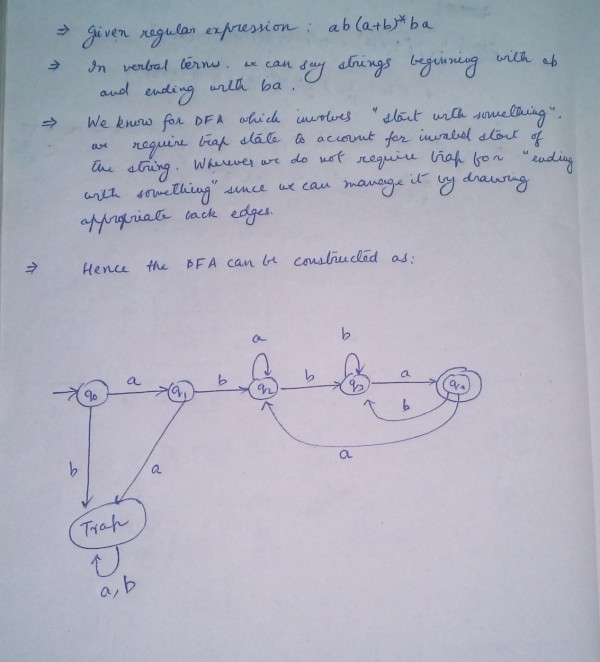 ⇒ Given regular expression : ab(a+b)*ba
⇒ In verbal terms. we can say strings beginning with ab
and ending with ba.
⇒ We know for DFA which involves "start with something".
we require trap state to account for invalid start of
the string. Wherever we do not require trap for "ending
with something" since we can manage it by drawing
appropriate back edges.
⇒ Hence the DFA can be constructed as:
a b
q0 a q1 b q2 b q3 a q4
b
a
b a
Trap
a, b